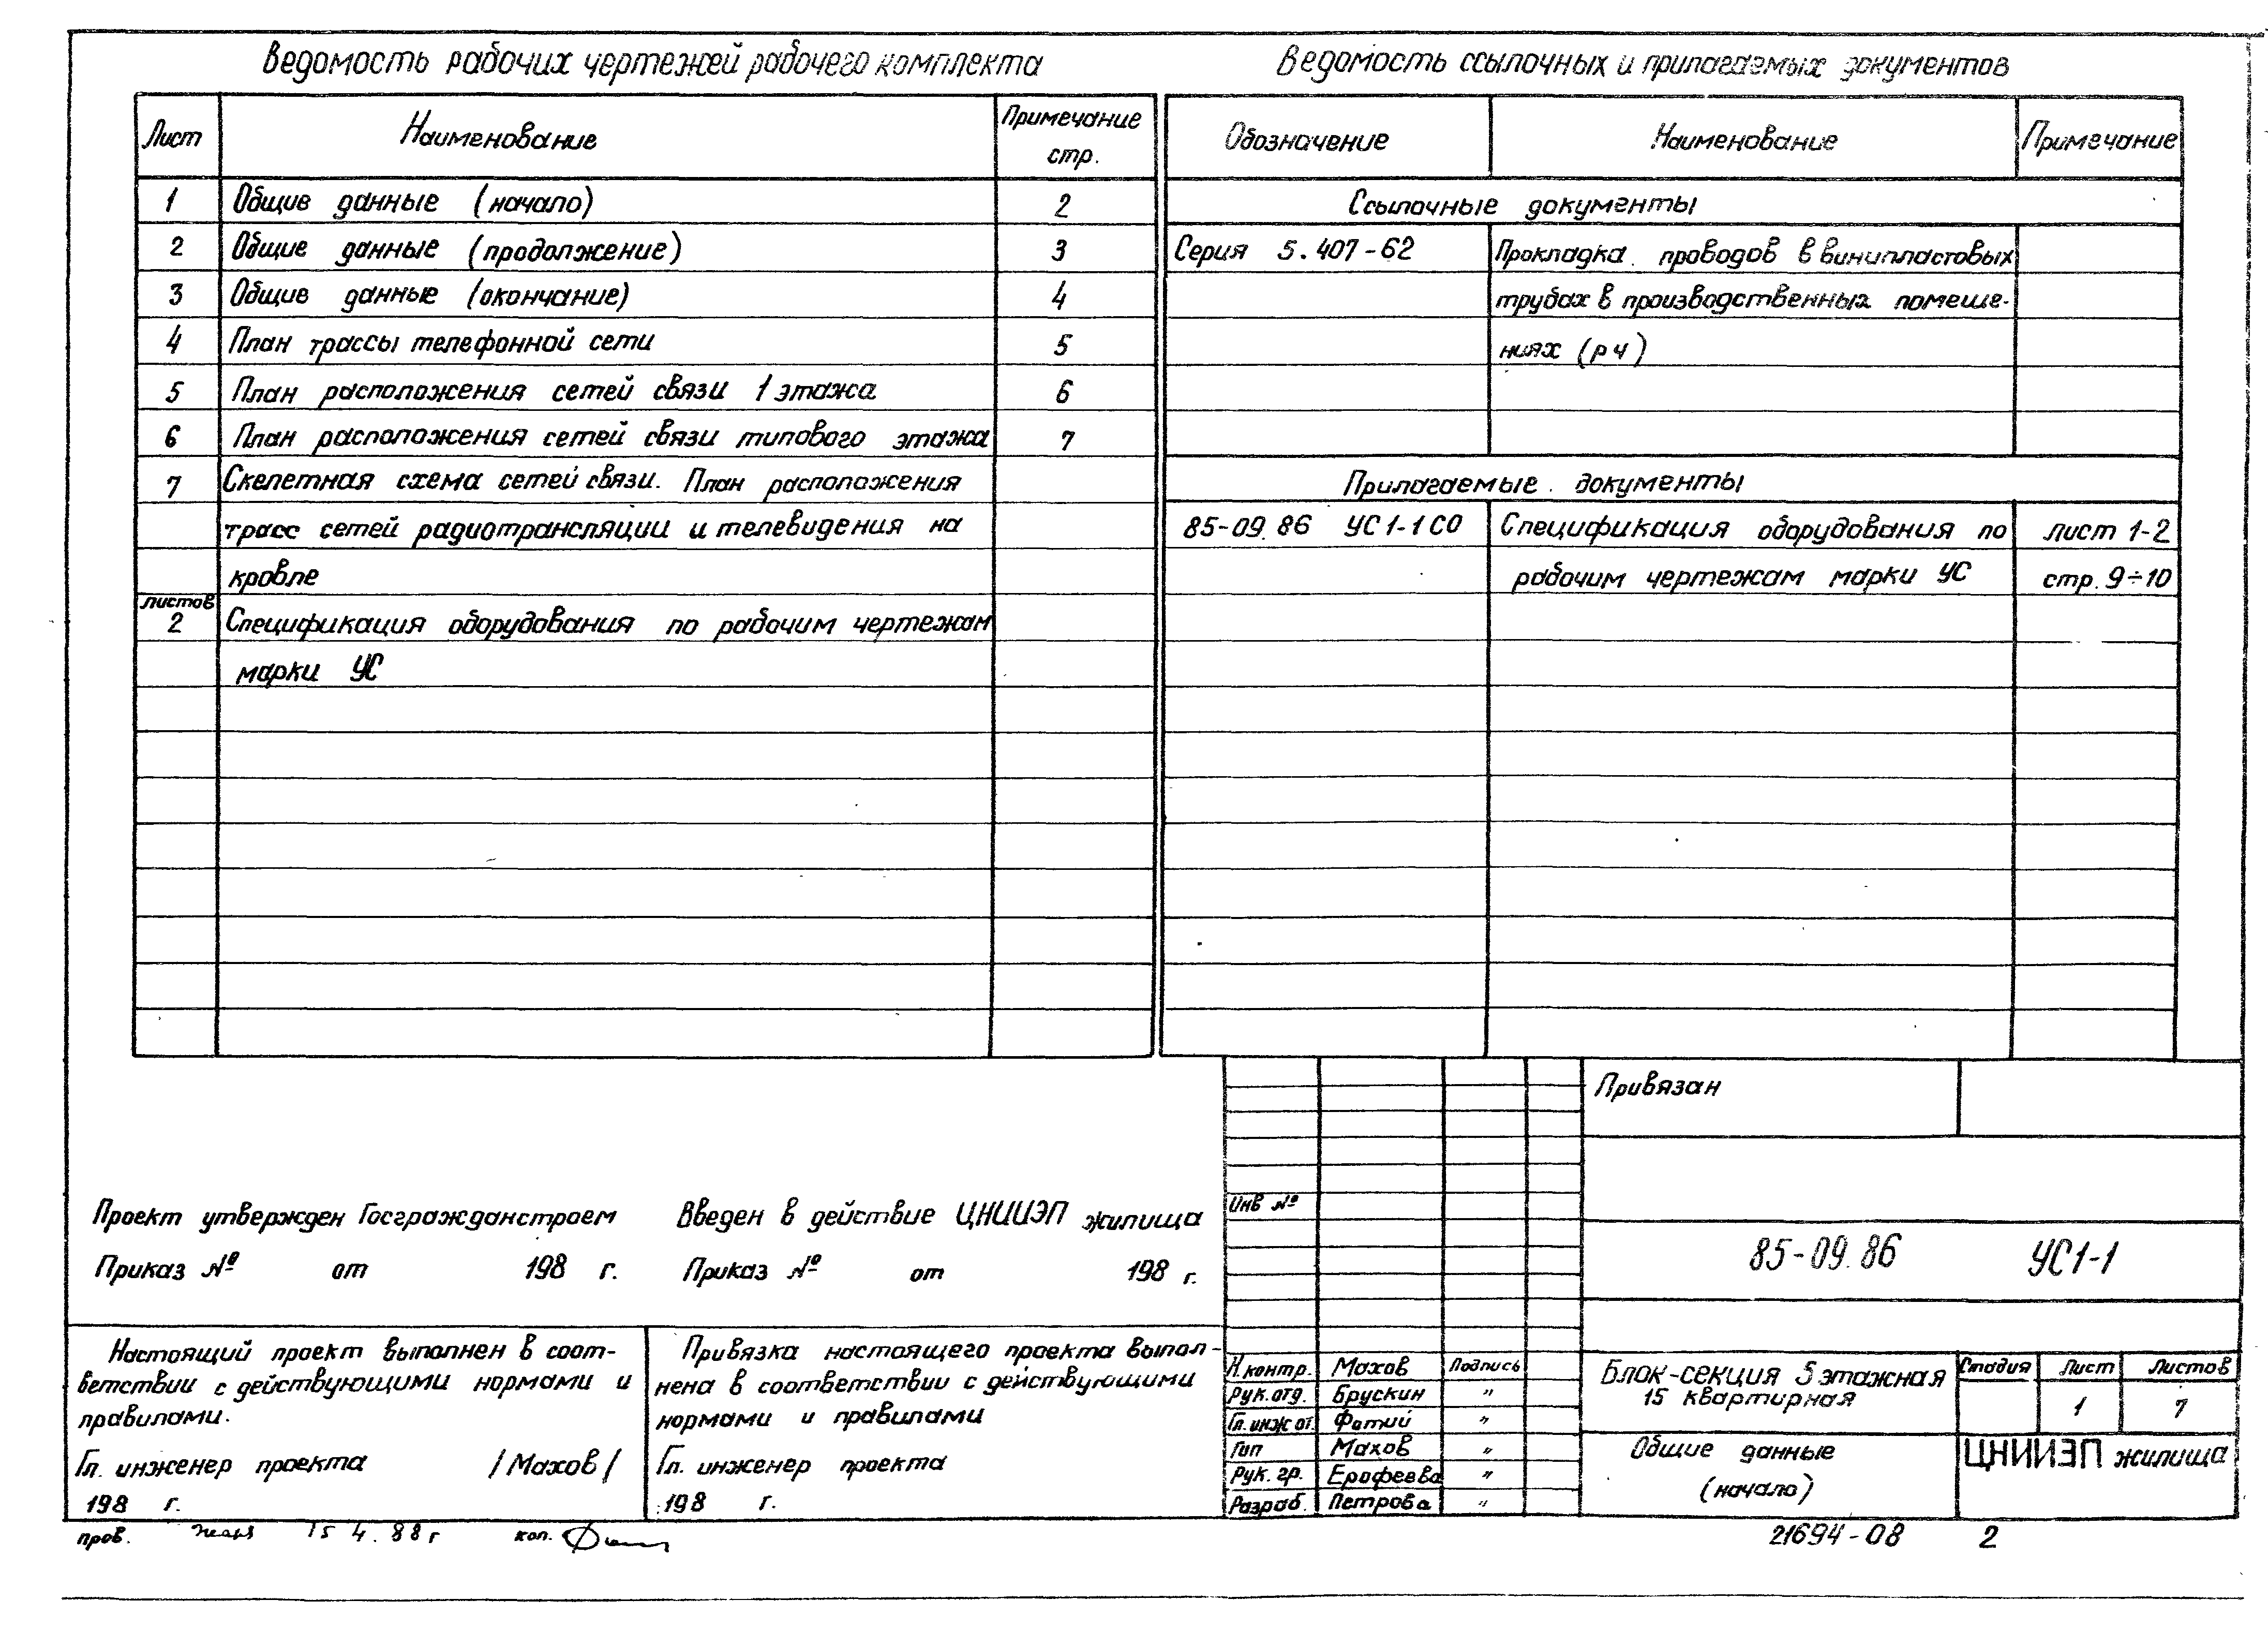 Ведомость рабочих чертежей рабочего комплекта
Лист Наименование Примечание стр.
1 Общие данные (начало) 2
2 Общие данные (продолжение) 3
3 Общие данные (окончание) 4
4 План трассы телефонной сети 5
5 План расположения сетей связи 1 этажа 6
6 План расположения сетей связи типового этажа 7
7 Скелетная схема сетей связи. План расположения
трасс сетей радиотрансляции и телевидения на
кровле
листов
2 Спецификация оборудования по рабочим чертежам
марки УС
Ведомость ссылочных и прилагаемых документов
Обозначение Наименование Примечание
Ссылочные документы
Серия 5.407-62 Прокладка проводов в винипластовых
трубах в производственных помеще-
ниях (рч)
Прилагаемые документы
85-09.86 УС1-1 СО Спецификация оборудования по лист 1-2
рабочим чертежам марки УС стр. 9÷10
Проект утвержден Госгражданстроем
Приказ № от 198 г.
Введен в действие ЦНИИЭП жилища
Приказ № от 198 г.
Настоящий проект выполнен в соот-
ветствии с действующими нормами и
правилами.
Гл. инженер проекта /Махов/
198 г.
Привязка настоящего проекта выпол-
нена в соответствии с действующими
нормами и правилами
Гл. инженер проекта
198 г.
Инв №
Н.контр. Махов Подпись
Рук.отд. Брускин "
Гл.инж от. Фотий "
Гип Махов "
Рук. гр. Ерофеева "
Разраб. Петрова "
Привязан
85-09.86 УС1-1
Блок-секция 5 этажная
15 квартирная
Стадия Лист Листов
1 7
Общие данные
(начало)
ЦНИИЭП жилища
пров. 15 4.88г кол.
21694-08 2